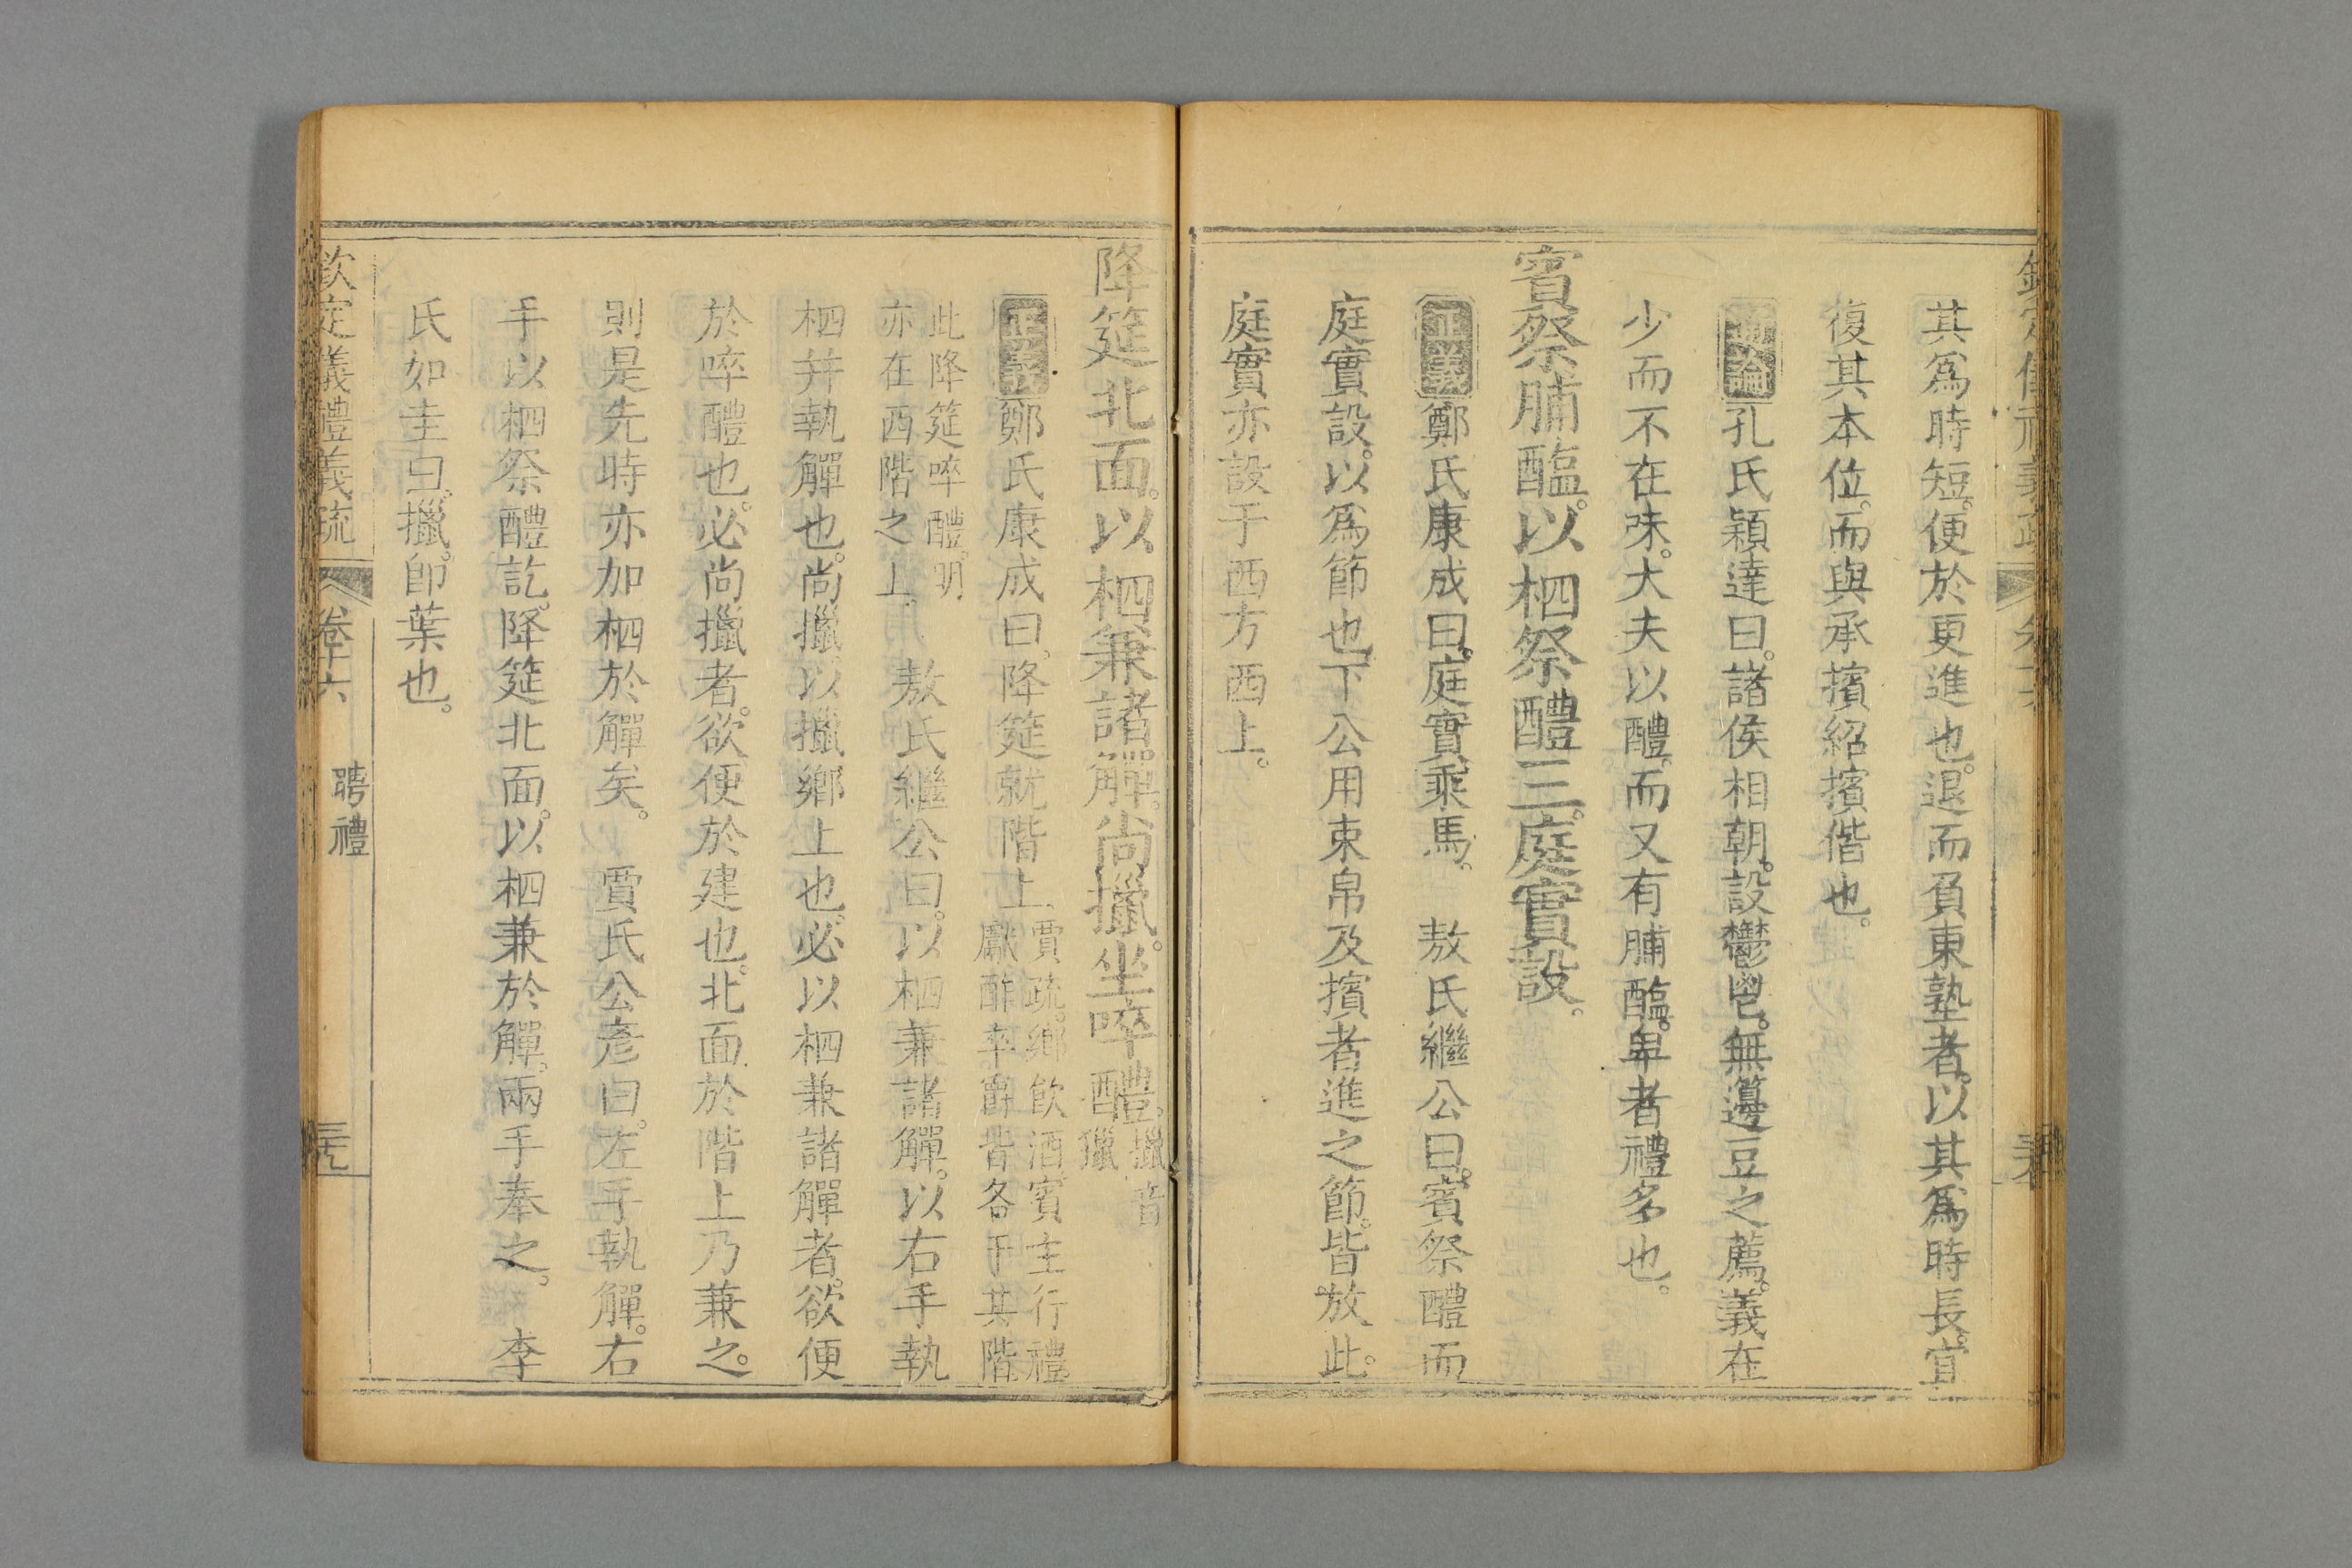 其爲時短。便於更進也。退而負東塾者。以其爲時長。宜
復其本位。而與承擯紹擯偕也。
通論孔氏穎達曰。諸侯相朝。設鬱鬯。無籩豆之薦。義在
少而不在味。大夫以醴。而又有脯醢。卑者禮多也。
賓祭脯醢。以柶祭醴三。庭實設。
正義鄭氏康成曰。庭實乘馬。 敖氏繼公曰。賓祭醴而
庭實設。以爲節也。下公用束帛及擯者進之節。皆放此。
庭實亦設于西方西上。
降筵北面。以柶兼諸觶。尚擸。坐啐醴。擸音
獵
正義鄭氏康成曰。降筵就階上。賈疏。鄉飲酒賓主行禮。
獻酢卒爵皆各于其階。
此降筵啐醴。明
亦在西階之上。 敖氏繼公曰。以柶兼諸觶。以右手執
柶幷執觶也。尚擸以擸鄉上也。必以柶兼諸觶者。欲便
於啐醴也。必尚擸者。欲便於建也。北面於階上乃兼之。
則是先時亦加柶於觶矣。 賈氏公彥曰。左手執觶。右
手以柶祭醴訖。降筵北面。以柶兼於觶。兩手奉之。 李
氏如圭曰。擸。卽葉也。
欽定儀禮義疏 卷十六 聘禮